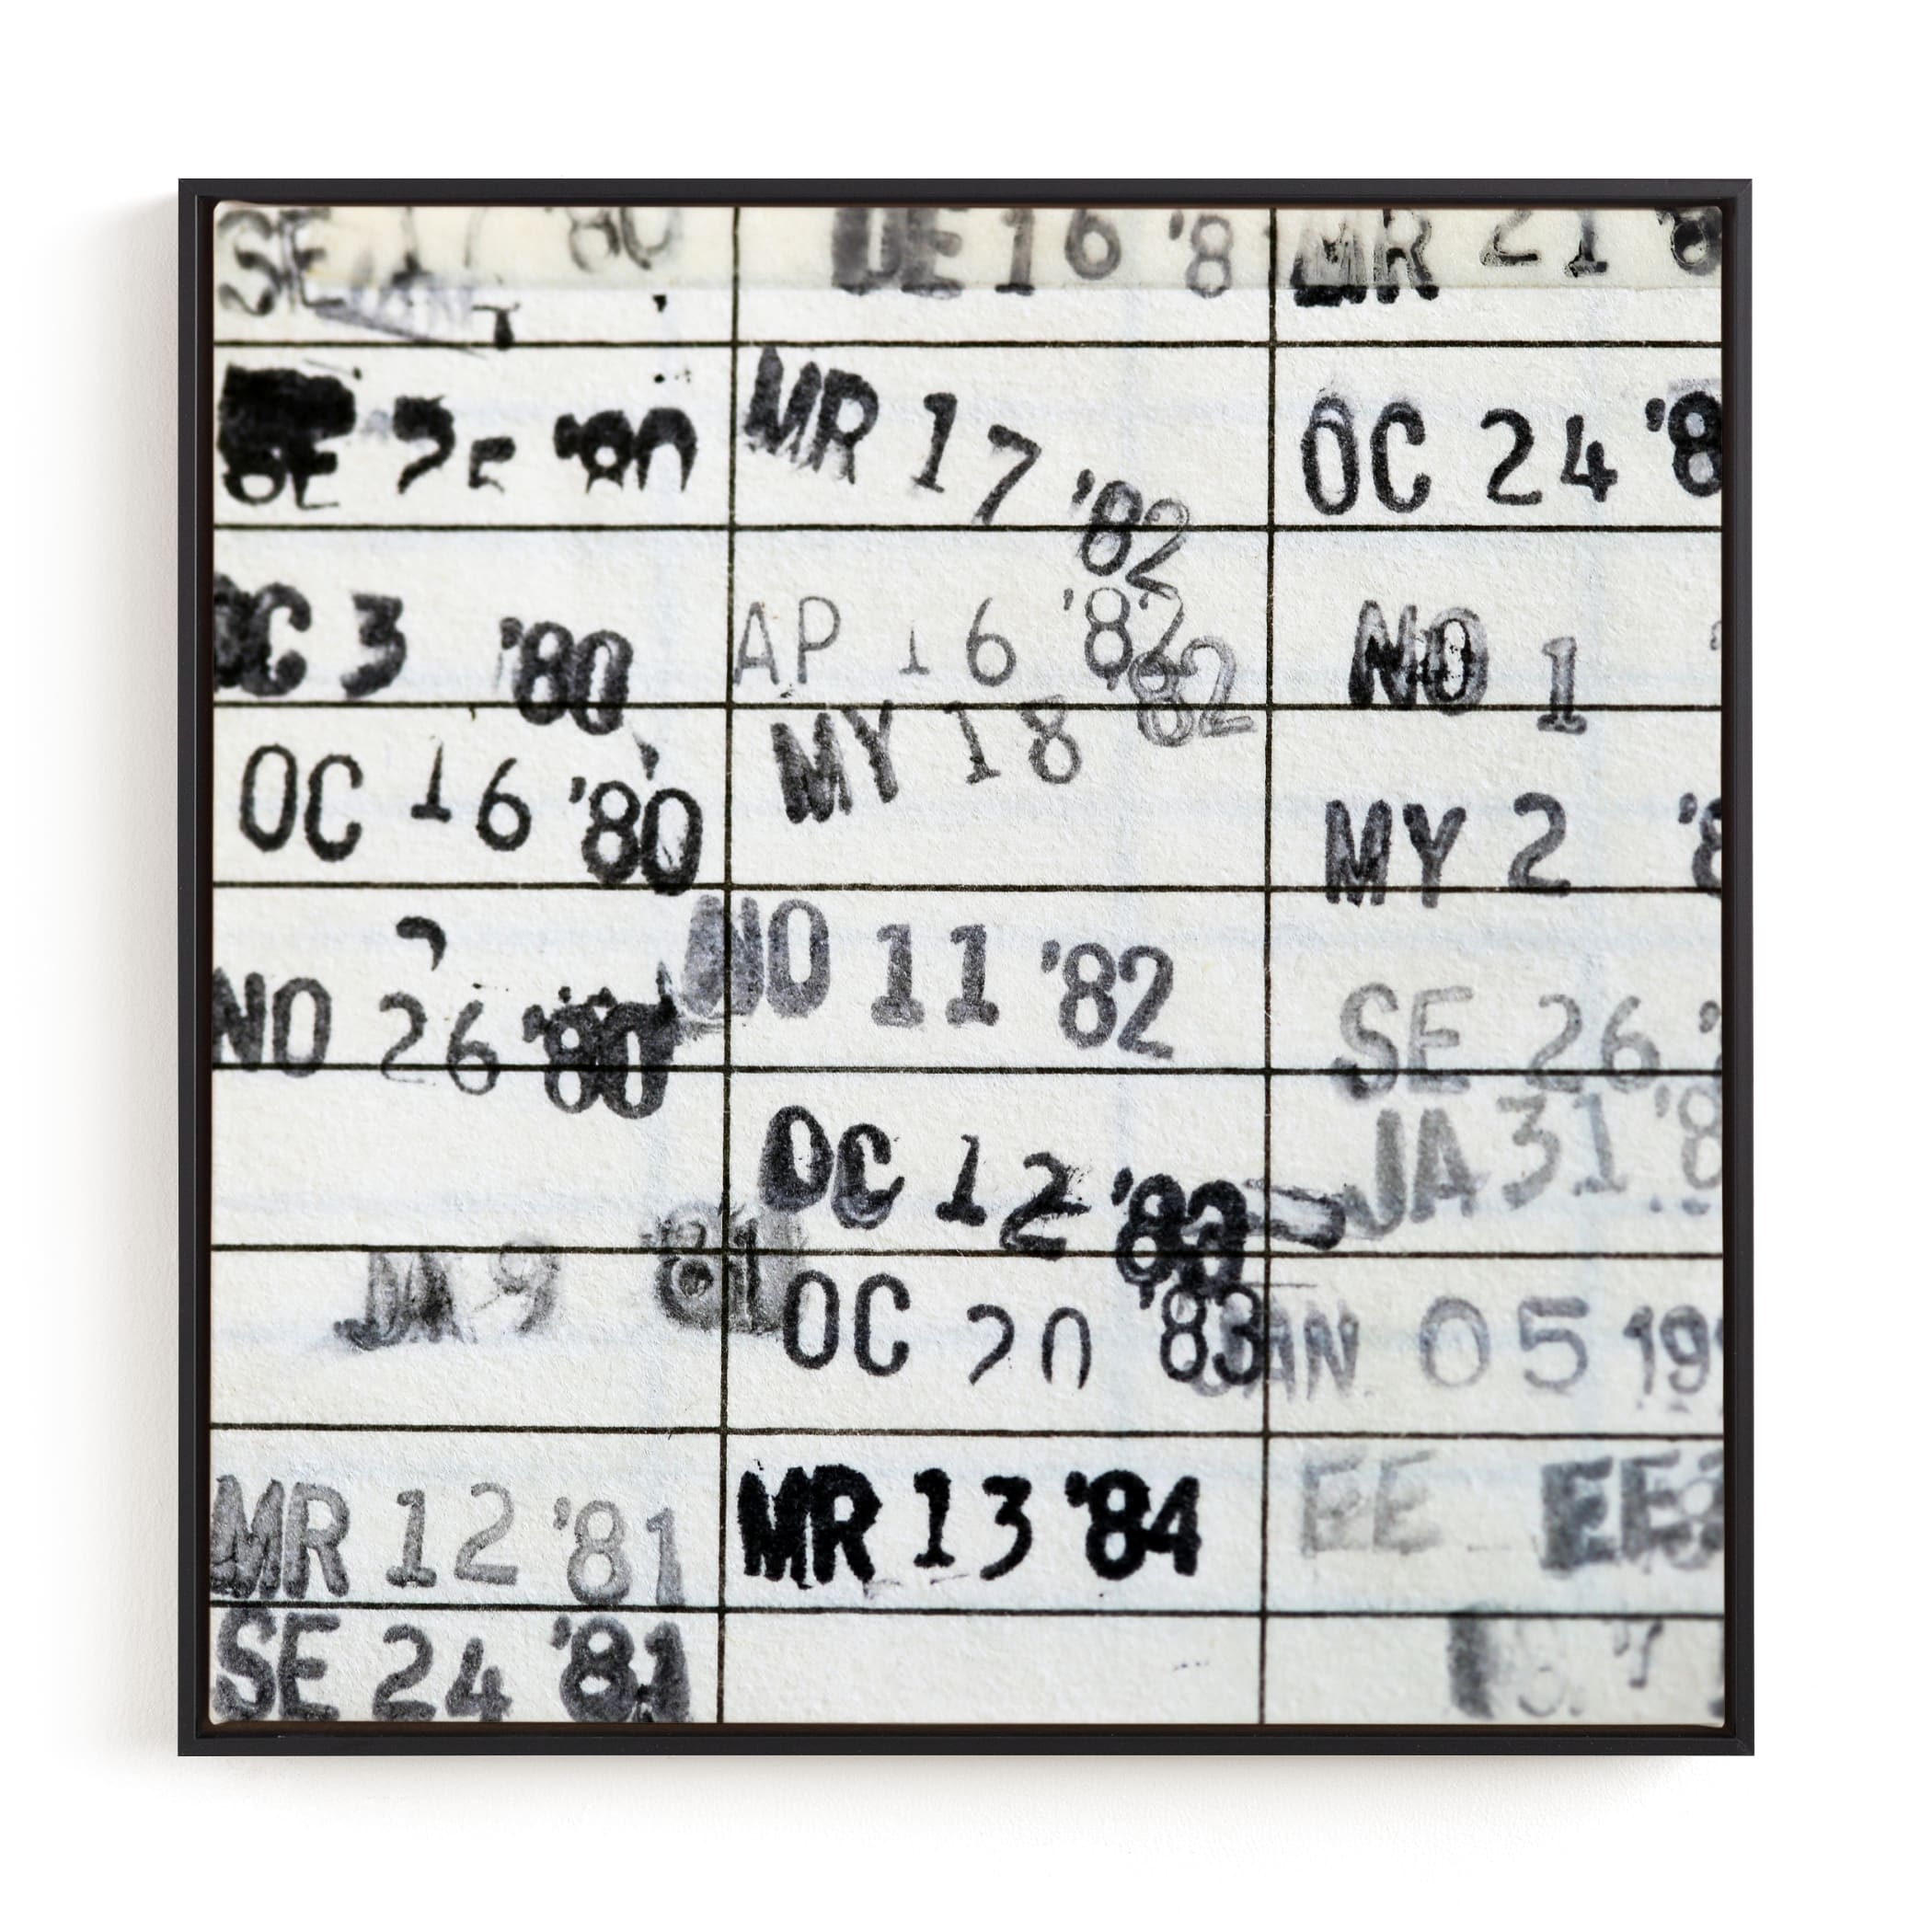 SE 17 '80
DE 16 '8
MR 21 '8
SE 25 '80
MR 17 '82
OC 24 '8
OC 3 '80
AP 16 '82
NO 1
OC 16 '80
MY 18 82
MY 2 '8
NO 26 '80
NO 11 '82
SE 26 '
OC 12 '83
JA 31 '8
JA 9 81
OC 20 '83
JAN 05 19
MR 12 '81
MR 13 '84
EE EE
SE 24 '81